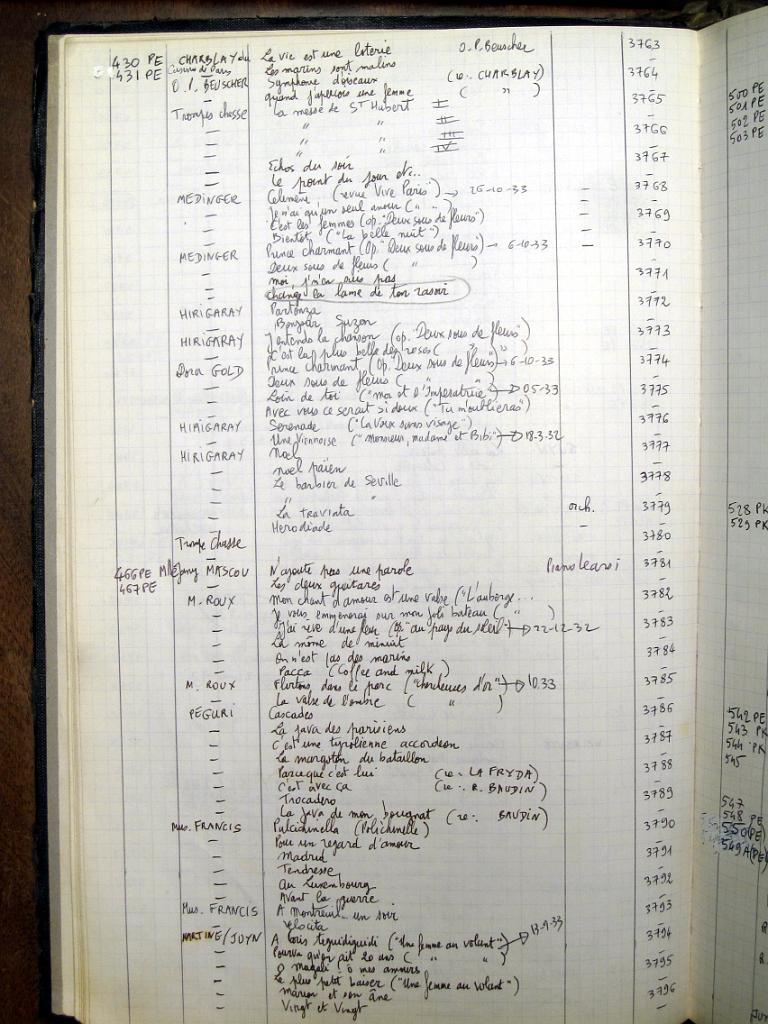 430 PE CHARBLAY du La vie est une loterie O.P. Beuscher 3763
431 PE Casino de Paris Les marins sont malins —
O. P. BEUSCHER Symphonie d'oiseaux (re. CHARBLAY) 3764
— quand j'aperçois une femme ( " ) —
Trompes chasse La messe de St Hubert I 3765
— " " II —
— " " III 3766
— " " IV —
— Echos du soir 3767
— Le point du jour etc.. —
MEDINGER Celimène (revue Vive Paris) → 26-10-33 — 3768
— Je n'ai qu'un seul amour ( " " ) — —
— C'est les femmes (op. "Deux sous de fleurs") — 3769
— Bientôt ("La belle nuit") — —
MEDINGER Prince charmant (Op. "Deux sous de fleurs) → 6-10-33 — 3770
— Deux sous de fleurs ( " ) —
— moi, j'm'en suis pas 3771
— change la lame de ton rasoir —
HIRIGARAY Partonza 3772
— Bonjour Suzon —
HIRIGARAY J'entends la chanson (op. "Deux sous de fleurs") 3773
— C'est la plus belle des roses ( " " ) —
Dora GOLD Prince charmant (Op. Deux sous de fleurs) → 6-10-33 3774
— Deux sous de fleurs ( " ) —
— Loin de toi ("moi et l'Imperatrice") → 05-33 3775
— Avec vous ce serait si doux ("Tu m'oublieras") —
HIRIGARAY Serenade ("La Voix sans visage") 3776
— Une Viennoise ("Monsieur, madame et Bibi") → 18-3-32 —
HIRIGARAY Noel 3777
— noel païen —
— Le barbier de Séville 3778
— " " —
— La Traviata orch. 3779
— Herodiade — —
Trompe Chasse 3780
— —
466PE Mlle Jany MASCOU N'ajoute pas une parole Piano 3781
467PE — Les deux guitares —
M. ROUX Mon chant d'amour est une valse ("L'auberge... 3782
— Je vous emmènerai sur mon joli bateau ( " ) —
— J'ai rêvé d'une fleur (Op. "au pays du soleil") → 22-12-32 3783
— La môme de minuit —
— On n'est pas des marins 3784
— Pacca (Coffee and milk) —
M. ROUX Flirtons dans le parc ("chercheuses d'or") → 10.33 3785
— La valse de l'ombre ( " ) —
PÉGURI Cascades 3786
— La java des parisiens —
— C'est une tyrolienne accordeon 3787
— La margoton du bataillon —
— Parce que c'est lui (re. LA FRYDA) 3788
— C'est avec ça (re. R. BAUDIN) —
— Trocadero 3789
— La java de mon bougnat (re. BAUDIN) —
Mus. FRANCIS Pulcichinella (Polichinelle) 3790
— Pour un regard d'amour —
— Madrid 3791
— Tendresse —
— Au Luxembourg 3792
— Avant la guerre —
Mus. FRANCIS A Montreuil un soir 3793
— Velocita —
MARTINE/JUYN A Loris tiguidiguidi ("Une femme au volant") → 13-9-33 3794
— Pourvu qu'on ait 20 ans ( " " ) —
— O Magali! ô mes amours 3795
— Le plus petit baiser ("Une femme au volant") —
— Marion et son âne 3796
— Vingt et Vingt —
500 PE
501 PE
502 PE
503 PE
528 PK
529 PK
542 PE
543 PK
544 PK
545
547
548 PE
550 (PE)
549A (PE)